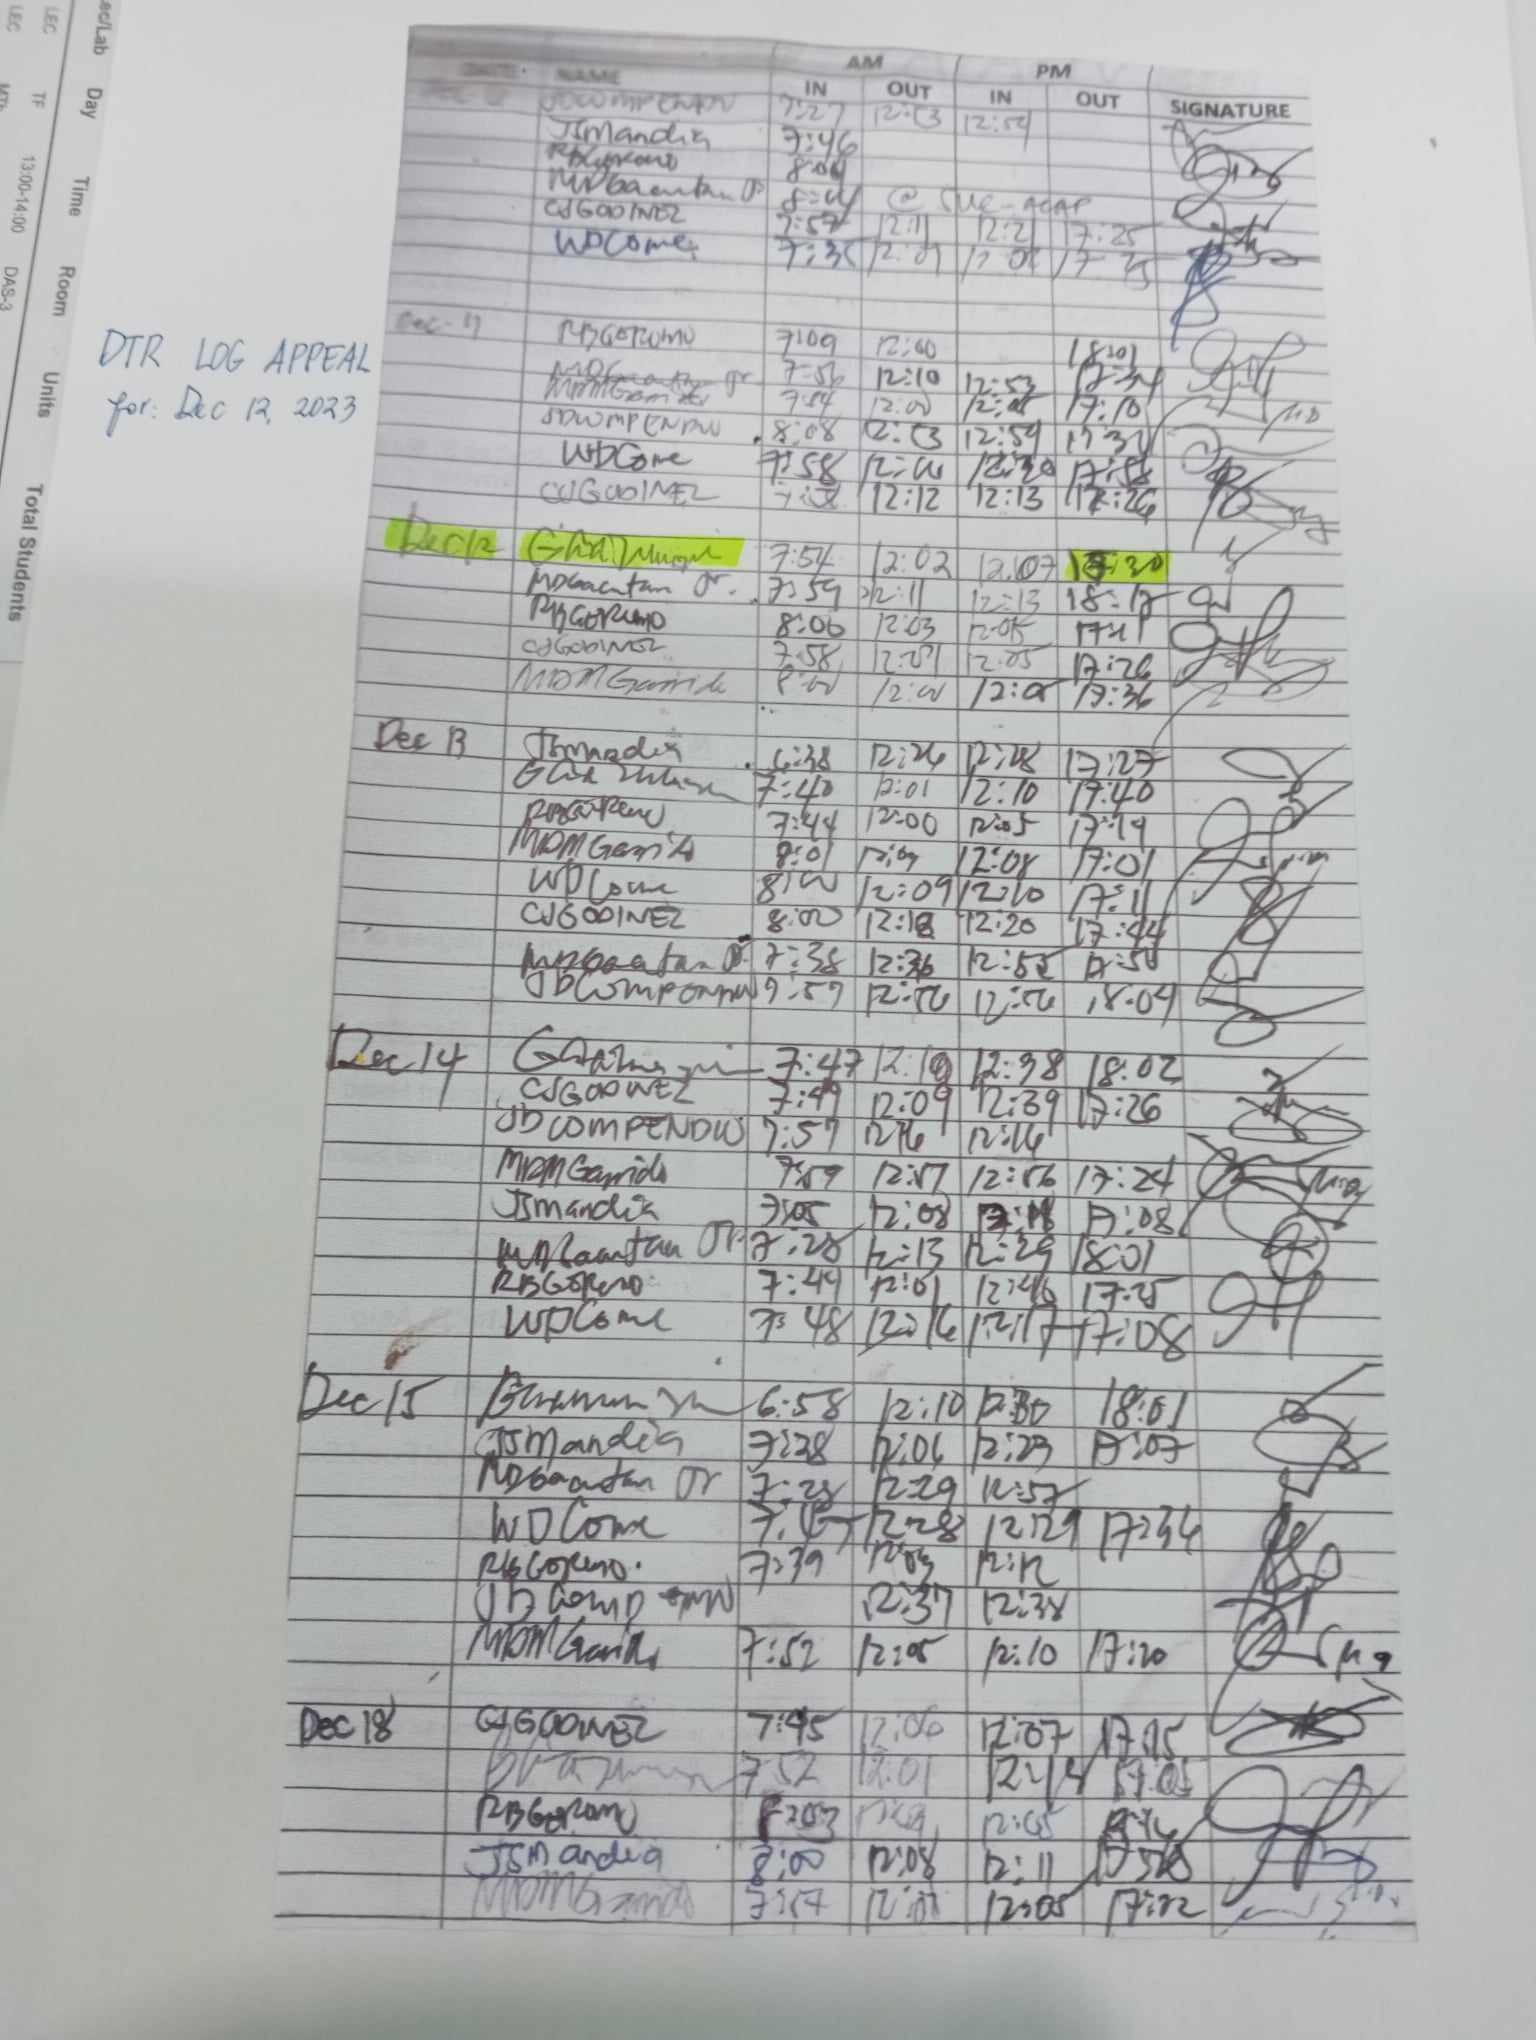 Sec/Lab Day Time Room Units Total Students
LEC TF 13:00-14:00 DAS-3
LEC MTh
DTR LOG APPEAL
for: Dec 12, 2023
AM PM
DATE NAME IN OUT IN OUT SIGNATURE
JDCOMPENDIO 7:27 12:53 12:54
JSMandia 7:46
RBGoreno 8:04
MDGaantan Jr @ SUC-ACAP
CJGODINEZ 7:57 12:11 12:21 17:25
WDCome 7:35
Dec-11 RBGORENO 7:09 12:00 18:01
MDGaantan Jr 7:56 12:10 12:53 17:34
MDMGarrido 7:54 12:00 17:10
JDCOMPENDIO 8:08 12:53 12:54
WDCome 7:58 17:58
CJGODINEZ 12:12 12:13 17:26
Dec 12 7:54 12:02 12:07
MDGaantan Jr. 7:59 12:11 12:13
RBGORENO 8:06 12:03 12:05
CJGODINEZ 7:58 12:05 17:26
MDMGarrido 8:00 12:00 17:36
Dec 13 JSMandia 6:38 12:26 12:28 17:27
7:40 12:01 12:10 17:40
RBGoreno 7:44 12:00 12:05 17:19
MDMGarrido 8:01 12:08 17:01
WDCome 8:00 12:09 12:10 17:11
CJGODINEZ 8:00 12:18 12:20 17:44
MDGaantan Jr. 7:38 12:36 12:55
JDCOMPENDIO 7:59 12:56 12:56 18:04
Dec 14 7:47 12:10 12:38 18:02
CJGODINEZ 7:49 12:09 12:39 17:26
JDCOMPENDIO 7:57 12:16 12:16
MDMGarrido 7:59 12:56 17:24
JSMandia 7:05 12:08 17:08
MDGaantan Jr. 7:28 12:13 12:29 18:01
RBGoreno 7:49 12:01 12:46 17:25
WDCome 7:48 12:16 12:17 17:08
Dec 15 6:58 12:10 12:30 18:01
JSMandia 7:38 12:06 12:23 17:07
MDGaantan Jr 7:28 12:29 12:57
WDCome 12:28 12:29 17:34
RBGoreno. 7:39 12:12
JDCompendio 12:37 12:38
MDMGarrido 7:52 12:05 12:10 17:20
Dec 18 CJGODINEZ 7:45 12:06 12:07 17:15
7:52 12:01 12:14 17:05
RBGORENO 12:05
JSMandia 8:00 12:08 12:11
MDMGarrido 7:57 12:05 17:22